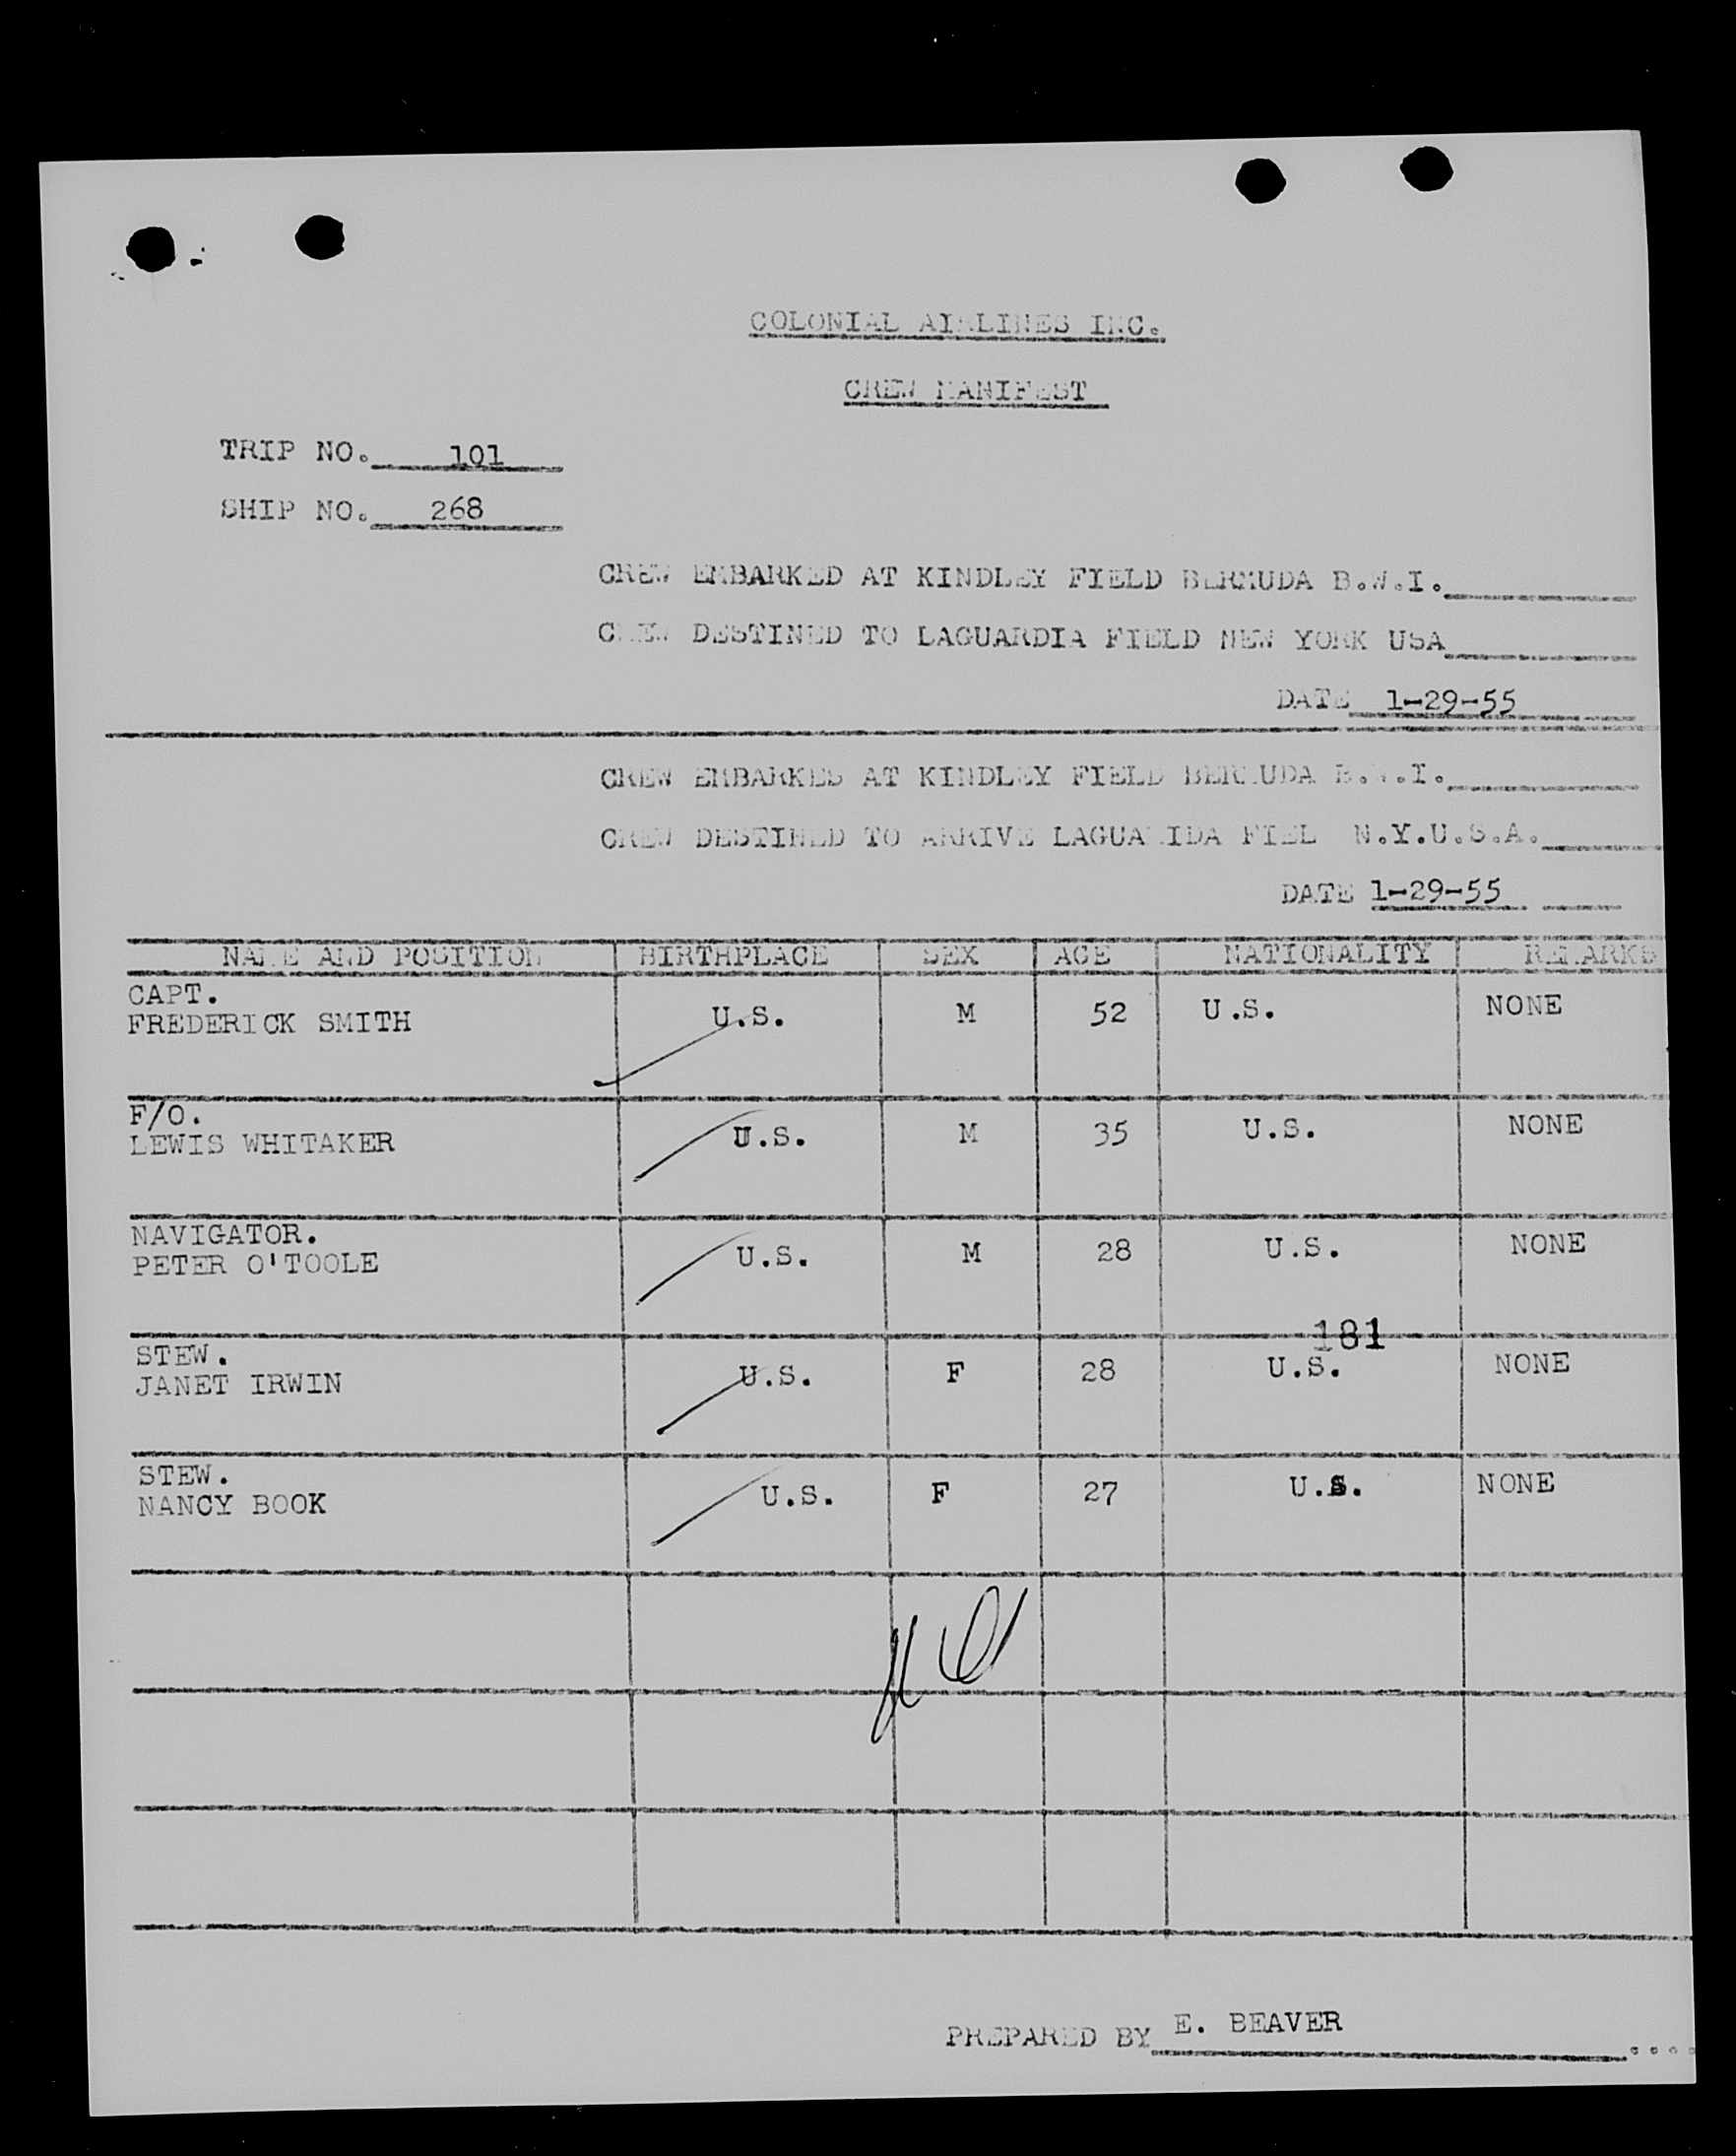 COLONIAL AIRLINES INC.
CREW MANIFEST
TRIP NO. 101
SHIP NO. 268
CREW EMBARKED AT KINDLEY FIELD BERMUDA B.W.I.
CREW DESTINED TO LAGUARDIA FIELD NEW YORK USA
DATE 1-29-55
CREW EMBARKED AT KINDLEY FIELD BERMUDA B.W.I.
CREW DESTINED TO ARRIVE LAGUARIDA FIEL N.Y.U.S.A.
DATE 1-29-55
NAME AND POSITION BIRTHPLACE SEX AGE NATIONALITY REMARKS
CAPT.
FREDERICK SMITH U.S. M 52 U.S. NONE
F/O.
LEWIS WHITAKER U.S. M 35 U.S. NONE
NAVIGATOR.
PETER O'TOOLE U.S. M 28 U.S. NONE
181
STEW.
JANET IRWIN U.S. F 28 U.S. NONE
STEW.
NANCY BOOK U.S. F 27 U.S. NONE
PREPARED BY E. BEAVER ....